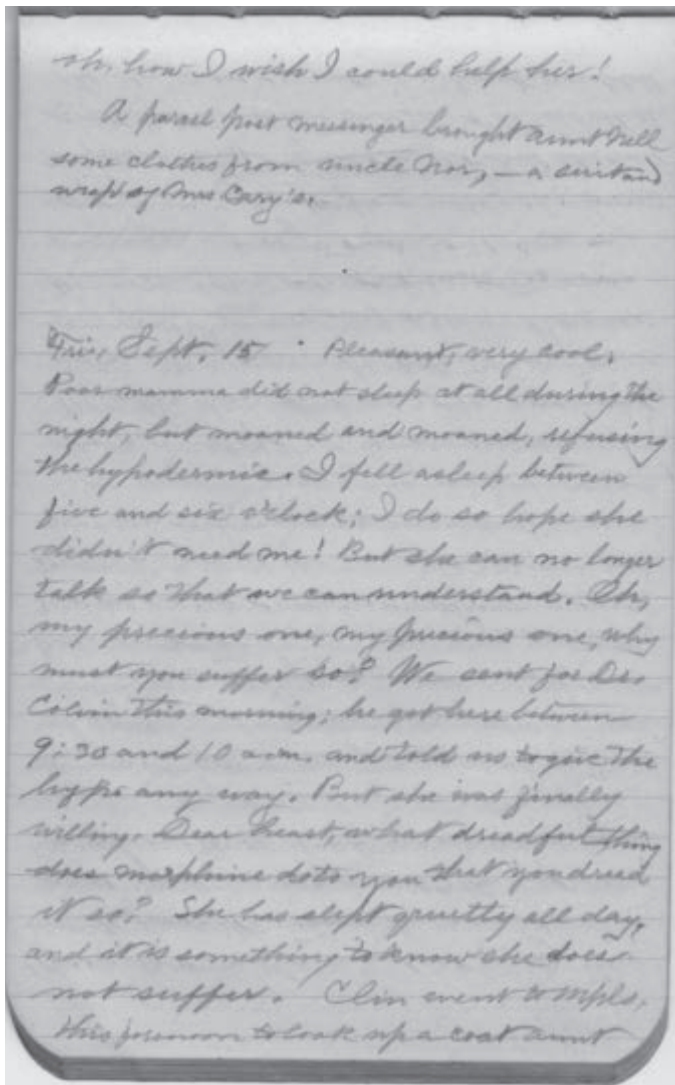 oh, how I wish I could help her!
A parcel post messenger brought aunt Nell
some clothes from uncle Nor, — a suit and
wrap of Mrs Cary's.
Fri, Sept. 15 Pleasant, very cool.
Poor mamma did not sleep at all during the
night, but moaned and moaned, refusing
the hypodermic. I fell asleep between
five and six o'clock; I do so hope she
didn't need me! But she can no longer
talk so that we can understand. Oh,
my precious one, my precious one, why
must you suffer so? We sent for Dr.
Colvin this morning; he got here between
9:30 and 10 a.m. and told us to give the
hypo any way. But she was finally
willing. Dear heart, what dreadful thing
does morphine do to you that you dread
it so? She has slept quietly all day,
and it is something to know she does
not suffer. Clin went to Mpls.
this forenoon to look up a coat aunt